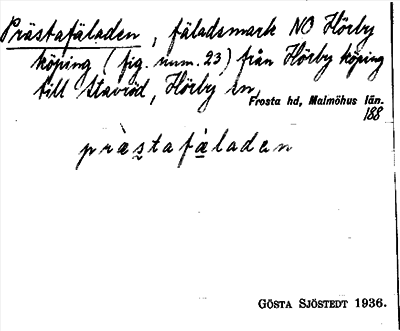 Prästafäladen, fäladsmark NO Hörby
köping (fig. num. 23) från Hörby köping
till Stavröd, Hörby sn,
Frosta hd, Malmöhus län.
188
prästafäladen
GÖSTA SJÖSTEDT 1936.